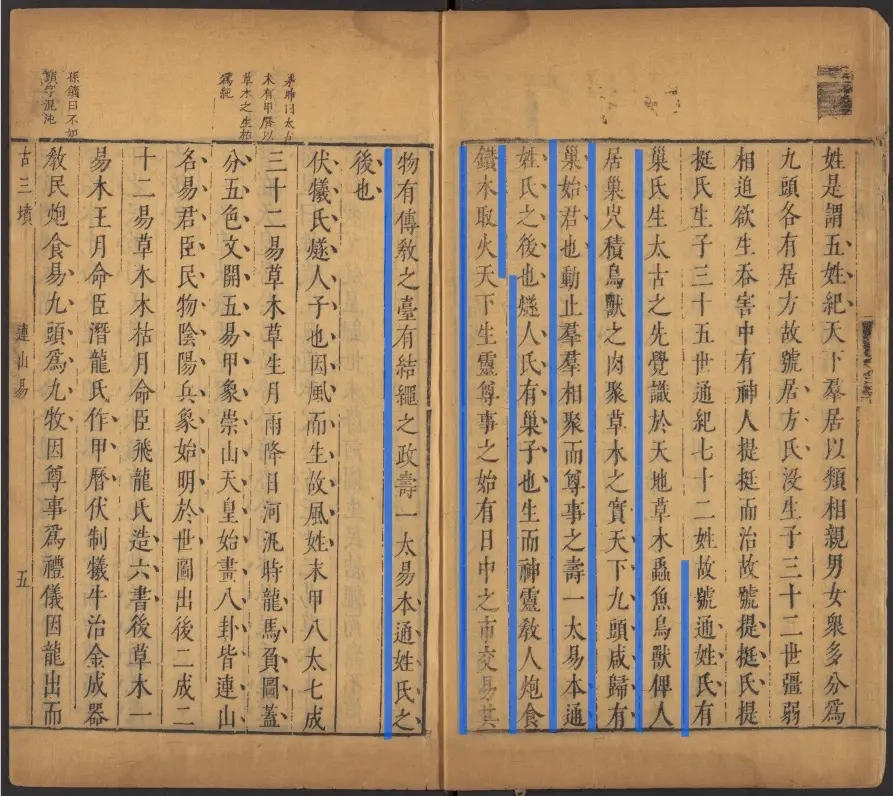 姓是謂五姓紀天下羣居以類相親男女衆多分爲
九頭各有居方故號居方氏沒生子三十二世彊弱
相迫欲生吞害中有神人提挺而治故號提挺氏提
挺氏生子三十五世通紀七十二姓故號通姓氏有
巢氏生太古之先覺識於天地草木蟲魚鳥獸俾人
居巢穴積鳥獸之肉聚草木之實天下九頭咸歸有
巢始君也動止羣羣相聚而尊事之壽一太易本通
姓氏之後也燧人氏有巢子也生而神靈敎人炮食
鑽木取火天下生靈尊事之始有日中之市交易其
物有傳敎之臺有結繩之政壽一太易本通姓氏之
後也
曰太古
未有甲曆以
草木之生枯
爲紀
伏犧氏燧人子也因風而生故風姓末甲八太七成
三十二易草木草生月雨降日河汎時龍馬負圖蓋
分五色文開五易甲象崇山天皇始畫八卦皆連山
名易君臣民物陰陽兵象始明於世圖出後二成二
十二易草木木枯月命臣飛龍氏造六書後草木一
孫鑛曰不如
頭字混沌
易木王月命臣潛龍氏作甲曆伏制犧牛治金成器
敎民炮食易九頭爲九牧因尊事爲禮儀因龍出而
古三墳 連山易 五